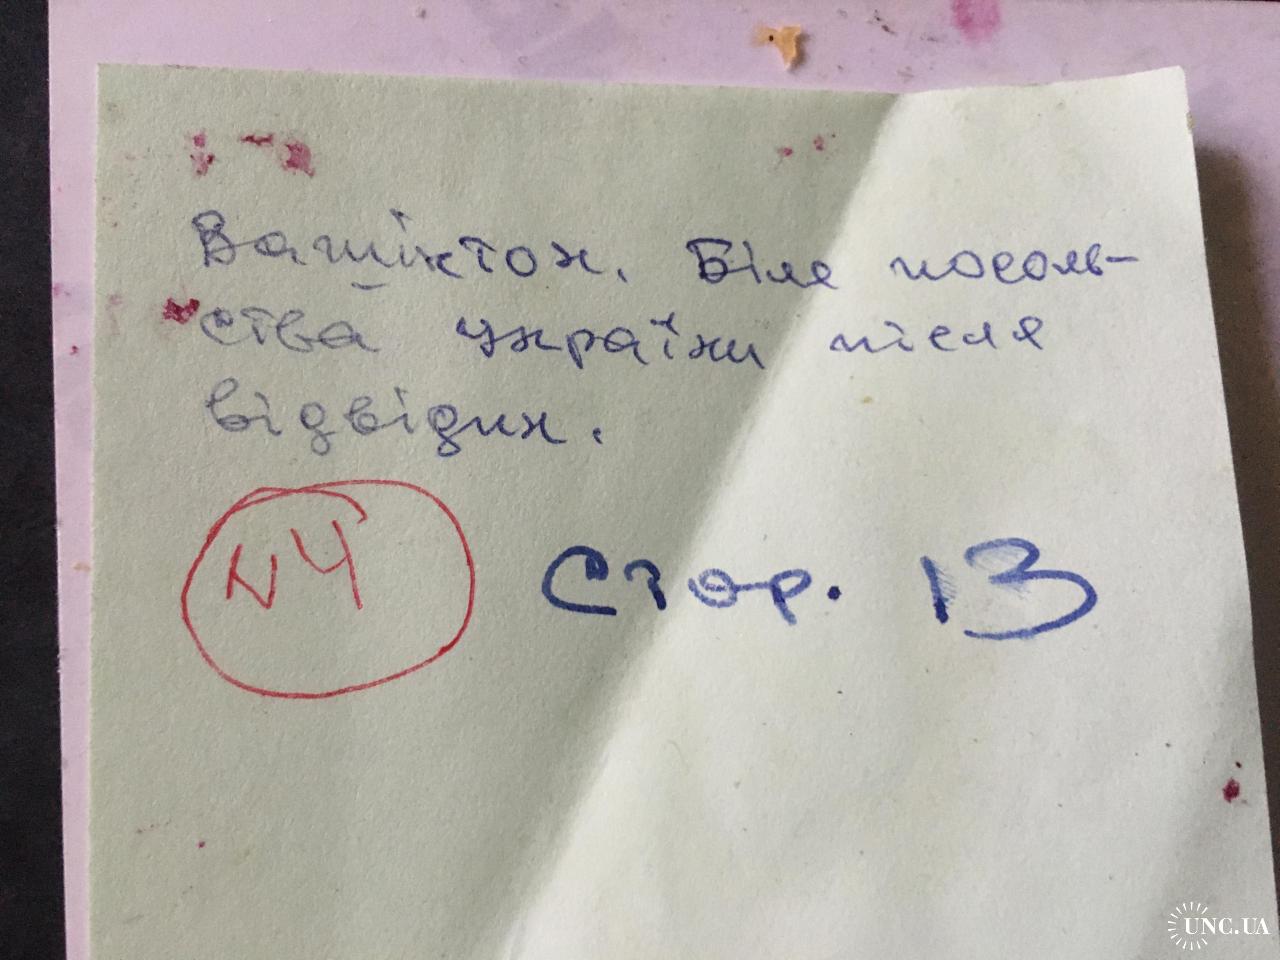 Вашінктон. Біля посоль-
ства україни після
відвідин.
N4 Стор. 13
UNC.UA